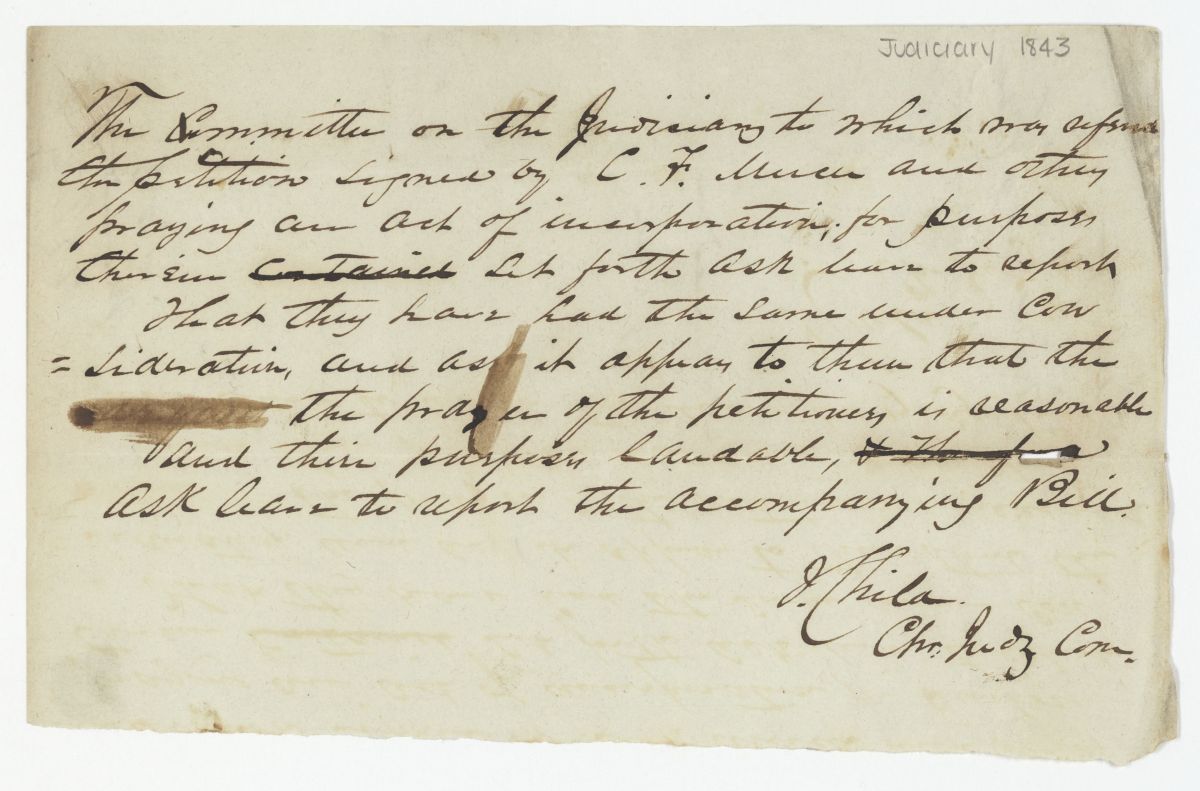 Judiciary 1843
The Committee on the Judiciary to which was referred
the petition signed by C. F. Mercer and others
praying an act of incorporation, for purposes
therein contained set forth ask leave to report
That they have had the same under Con
= sideration, and as it appears to them that the
the prayer of the petitioners is reasonable
and their purposes laudable, & Therefore
ask leave to report the accompanying Bill.
J. Child.
Chr. Judy Com.